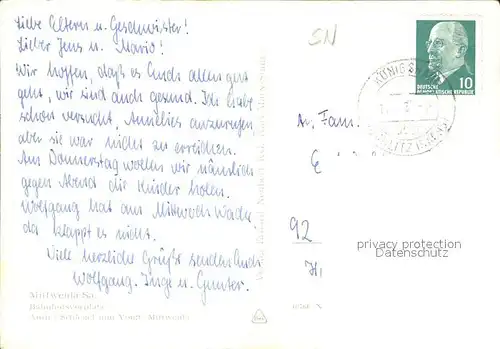 Liebe Eltern u. Geschwister!
Lieber Jens u. Mario!
Wir hoffen, daß es Euch allen gut
geht, wir sind auch gesund. Ich habe
schon versucht, Annelies anzurufen
aber sie war nicht zu erreichen.
Am Donnerstag wollen wir nämlich
gegen Abend die Kinder holen.
Wolfgang hat am Mittwoch Wache
da klappt es nicht.
Viele herzliche Grüße senden Euch
Wolfgang, Inge u. Gunter.
Mittweida Sa.
Bahnhofsvorplatz
SN
DEUTSCHE
DEMOKRATISCHE REPUBLIK
10
An Fam.
92
privacy protection
Datenschutz